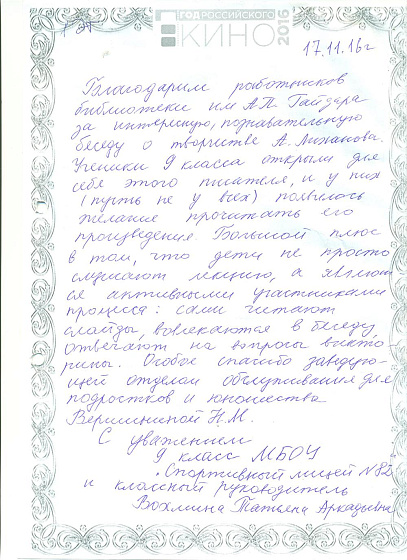 ГОД РОССИЙСКОГО
КИНО 2016
17.11.16г
Благодарим работников
библиотеки им А.П. Гайдара
за интересную, познавательную
беседу о творчестве А. Лиханова.
Ученики 9 класса открыли для
себя этого писателя, и у них
(пусть не у всех) появилось
желание прочитать его
произведения Большой плюс
в том, что дети не просто
слушают лекцию, а являют
ся активными участниками
процесса: сами читают
слайды, вовлекаются в беседу,
отвечают на вопросы викто-
рины. Особое спасибо заведую-
щей отделом обслуживания для
подростков и юношества
Вершининой Н.М.
С уважением
9 класс МБОУ
"Спортивный лицей №82"
и классный руководитель
Вохмина Татьяна Аркадьевна